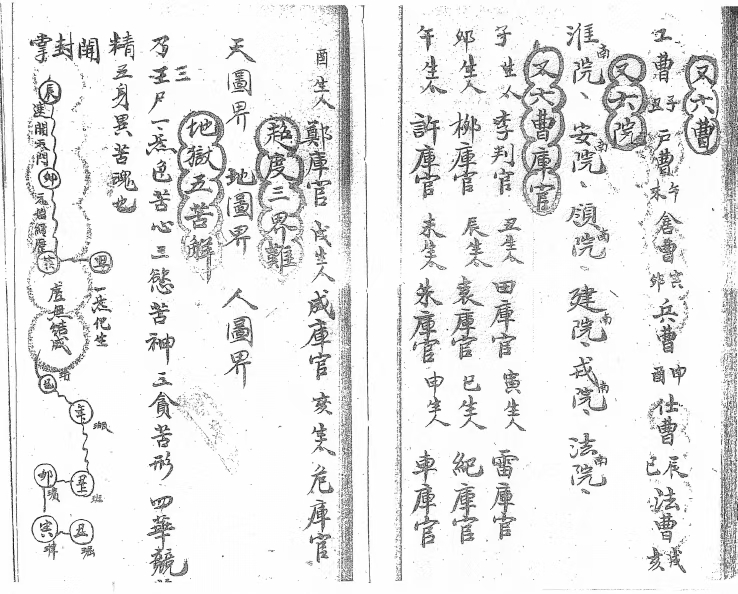 又六曹
工曹 子丑 戶曹 午未 倉曹 寅卯 兵曹 申酉 仕曹 辰巳 法曹 戌亥
又六院
淮院 南 安院 南 領院 南 建院 南 戎院 南 法院 南
又六曹庫官
子生人 李判官 丑生人 田庫官 寅生人 雷庫官
卯生人 柳庫官 辰生人 袁庫官 巳生人 紀庫官
午生人 許庫官 未生人 朱庫官 申生人 車庫官
酉生人 鄭庫官 戌生人 成庫官 亥生人 危庫官
超度三界難
天圖界 地圖界 人圖界
地獄五苦解
三尸 一 色苦心 二慾苦神 三貪苦形 四華競
精 五身異苦魂也
開封掌
辰
卯
寅 丑
一炁化生
虛無結成
巳
卯
寅 丑